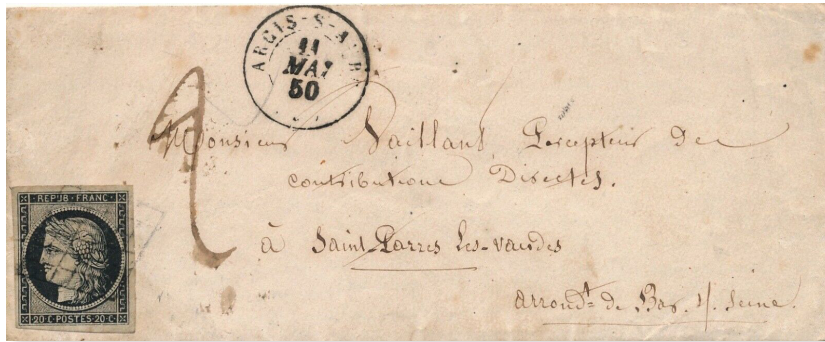 ARCIS-S-AUBE
11
MAI
50
2
Monsieur Vaillant, Percepteur de
contributions Directes.
à Saint-Parres les-vaudes
arrondt. de Bar s/ Seine.
REPUB·FRANC·
20·C·POSTES·20·C·